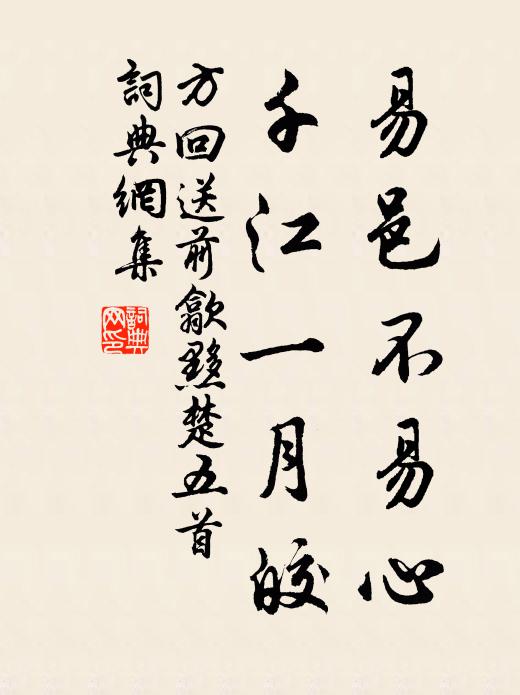 易邑不易心
千江一月皎
方回送前歙黟楚五首
詞典網集
詞典网印